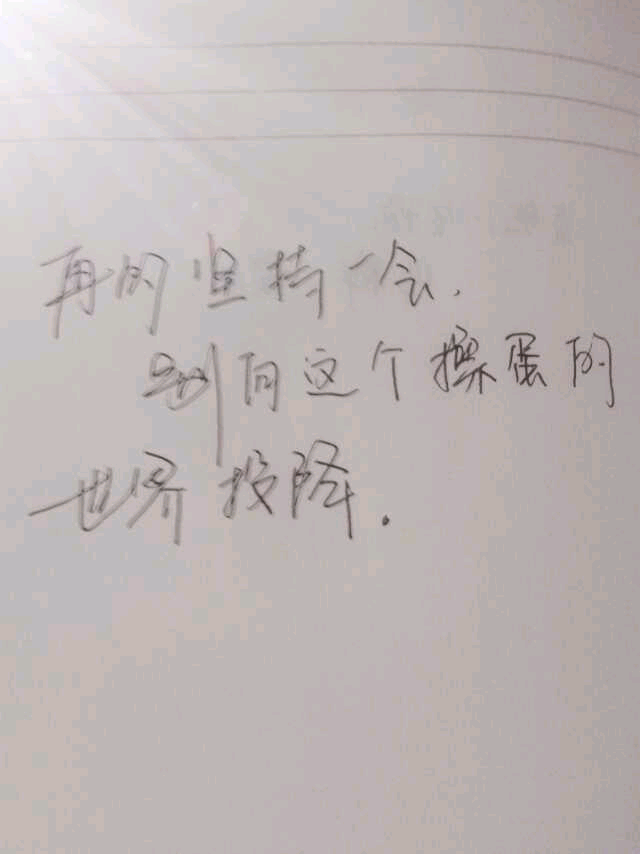 再的坚持一会.
别向这个操蛋的
世界投降.